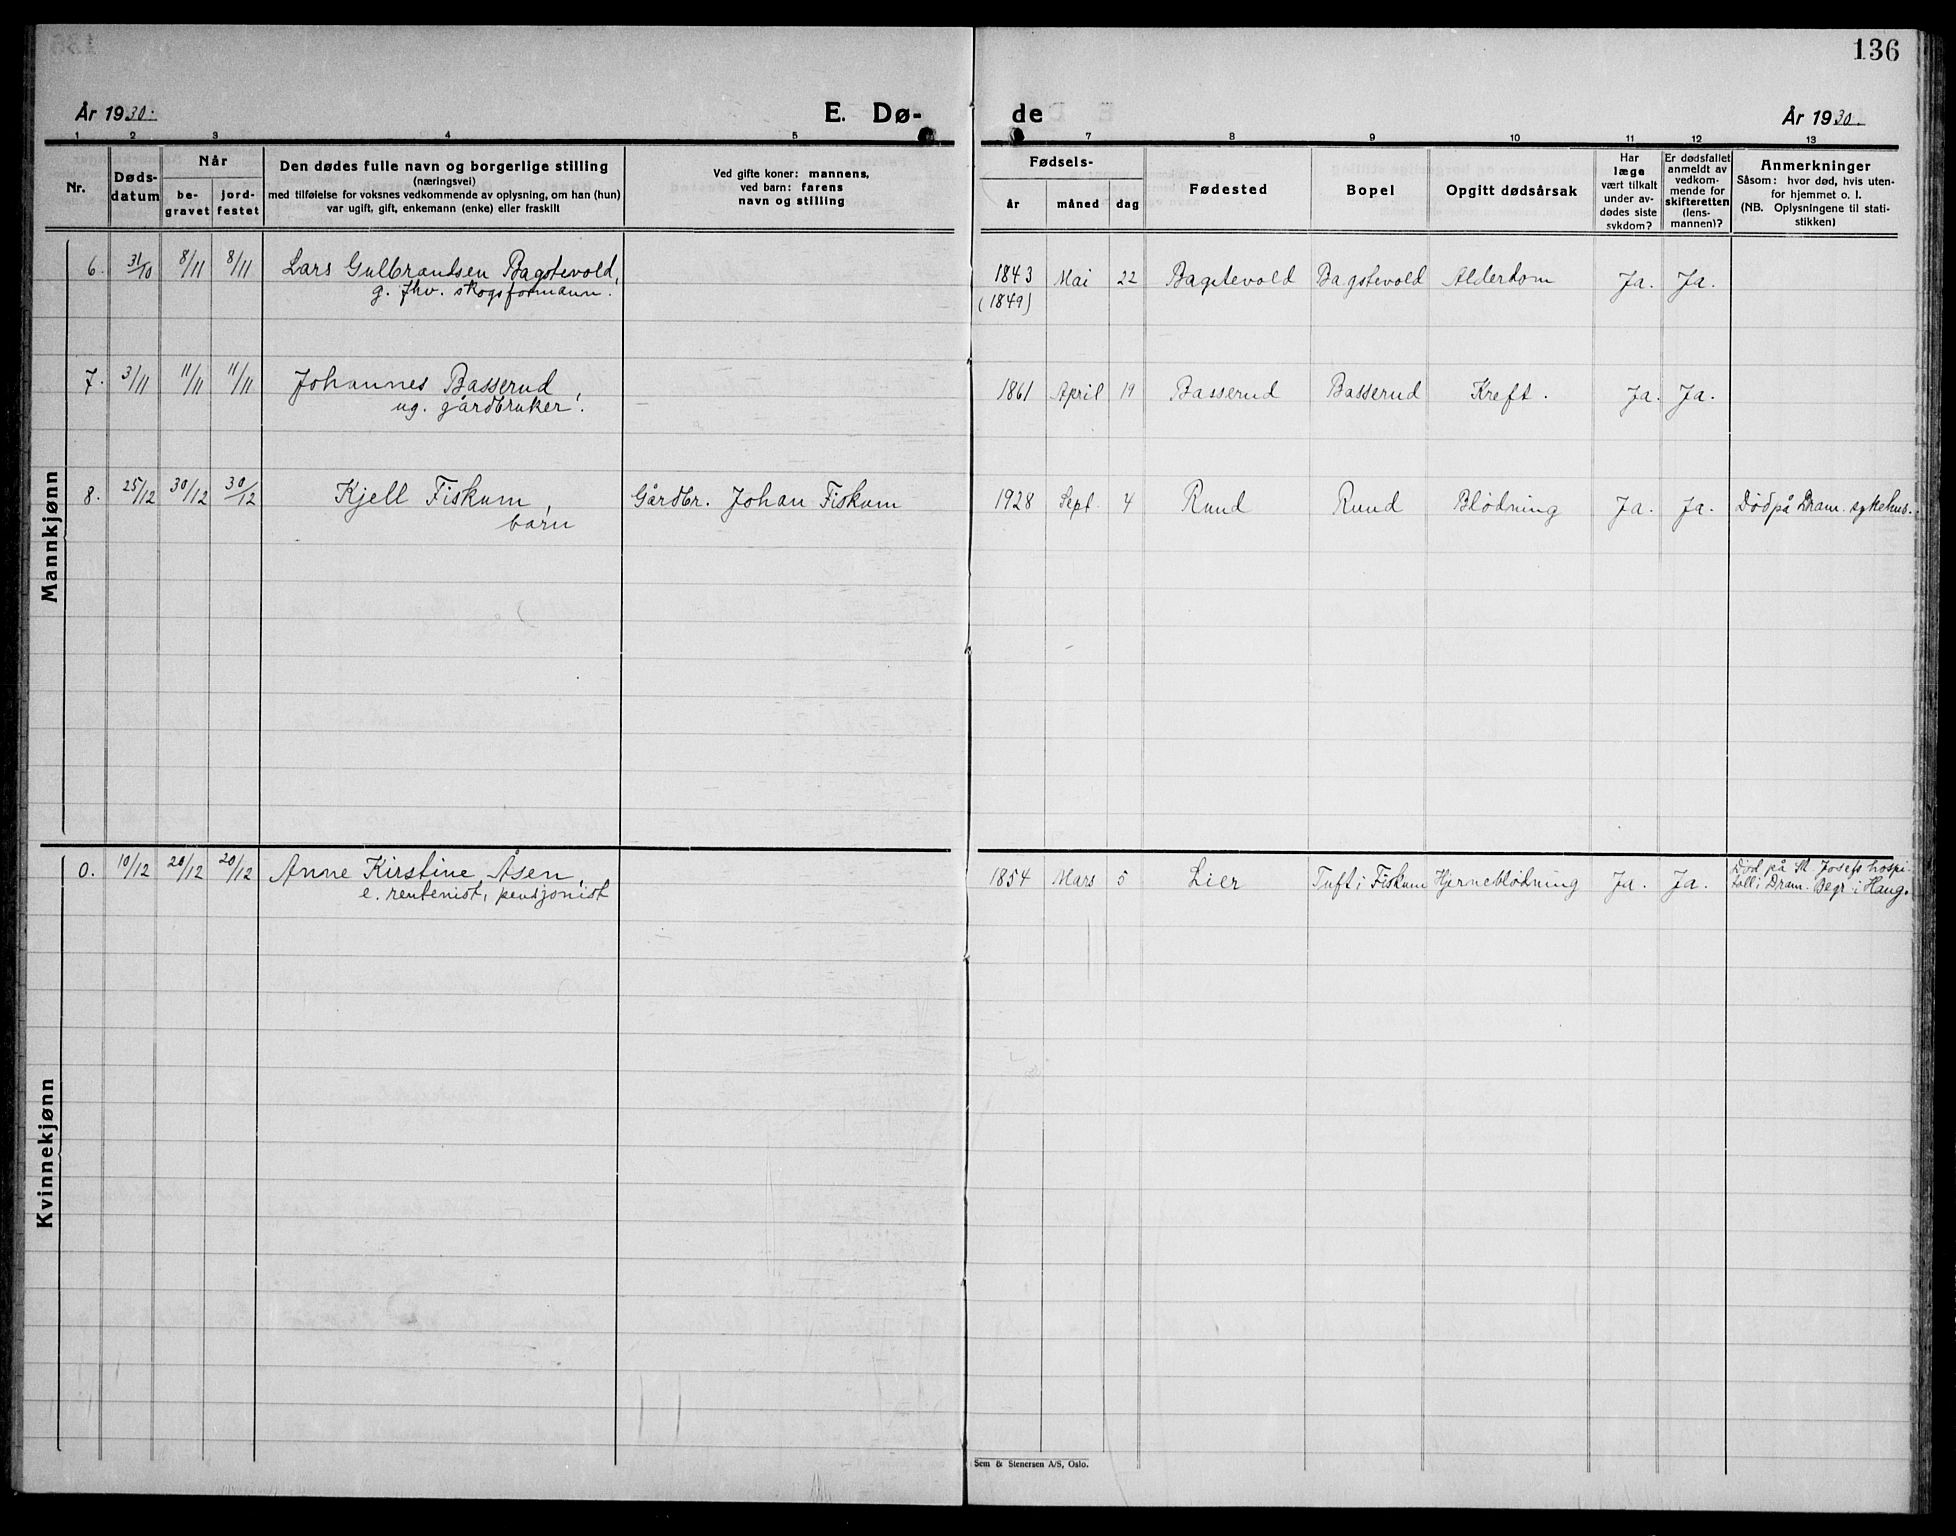 136
År 1930.
E. Dø-
de
År 1930.
1 2 3 4 5 7 8 9 10 11 12 13
Nr.
Døds-
datum
Når
be-
gravet
jord-
festet
Den dødes fulle navn og borgerlige stilling
(næringsvei)
med tilføielse for voksnes vedkommende av oplysning, om han (hun)
var ugift, gift, enkemann (enke) eller fraskilt
Ved gifte koner: mannens,
ved barn: farens
navn og stilling
Fødsels-
år måned dag
Fødested
Bopel
Opgitt dødsårsak
Har
læge
vært tilkalt
under av-
dødes siste
sykdom?
Er dødsfallet
anmeldt av
vedkom-
mende for
skifteretten
(lens-
mannen)?
Anmerkninger
Såsom: hvor død, hvis uten-
for hjemmet o. l.
(NB. Oplysningene til stati-
stikken)
Mannkjønn
6. 31/10 8/11 8/11 Lars Gulbrandsen Bagstevold, 1843 Mai 22 Bagstevold Bagstevold Alderdom Ja. Ja.
g. fhv. skogsformann. (1849)
7. 3/11 11/11 11/11 Johannes Basserud, 1861 April 19 Basserud Basserud Kreft. Ja. Ja.
ug. gårdbruker.
8. 25/12 30/12 30/12 Kjell Fiskum, Gårdbr. Johan Fiskum 1928 Sept. 4 Ruud Ruud Blødning Ja. Ja. Død på Dram. sykehus.
barn
Kvinnekjønn
0. 10/12 20/12 20/12 Anne Kirstine Åsen, 1854 Mars 5 Lier Tuft i Fiskum Hjerneblødning Ja. Ja. Død på St. Josefs hospi-
e. rentenist, pensjonist tall i Dram. Begr. i Haug.
Sem & Stenersen A/S, Oslo.